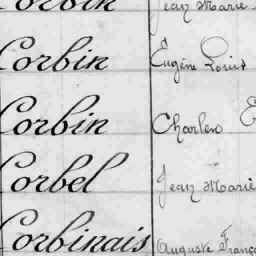 Corbin Jean Marie
Corbin Eugène Louis
Corbin Charles E
Corbel Jean Marie
Corbinais Auguste Franço